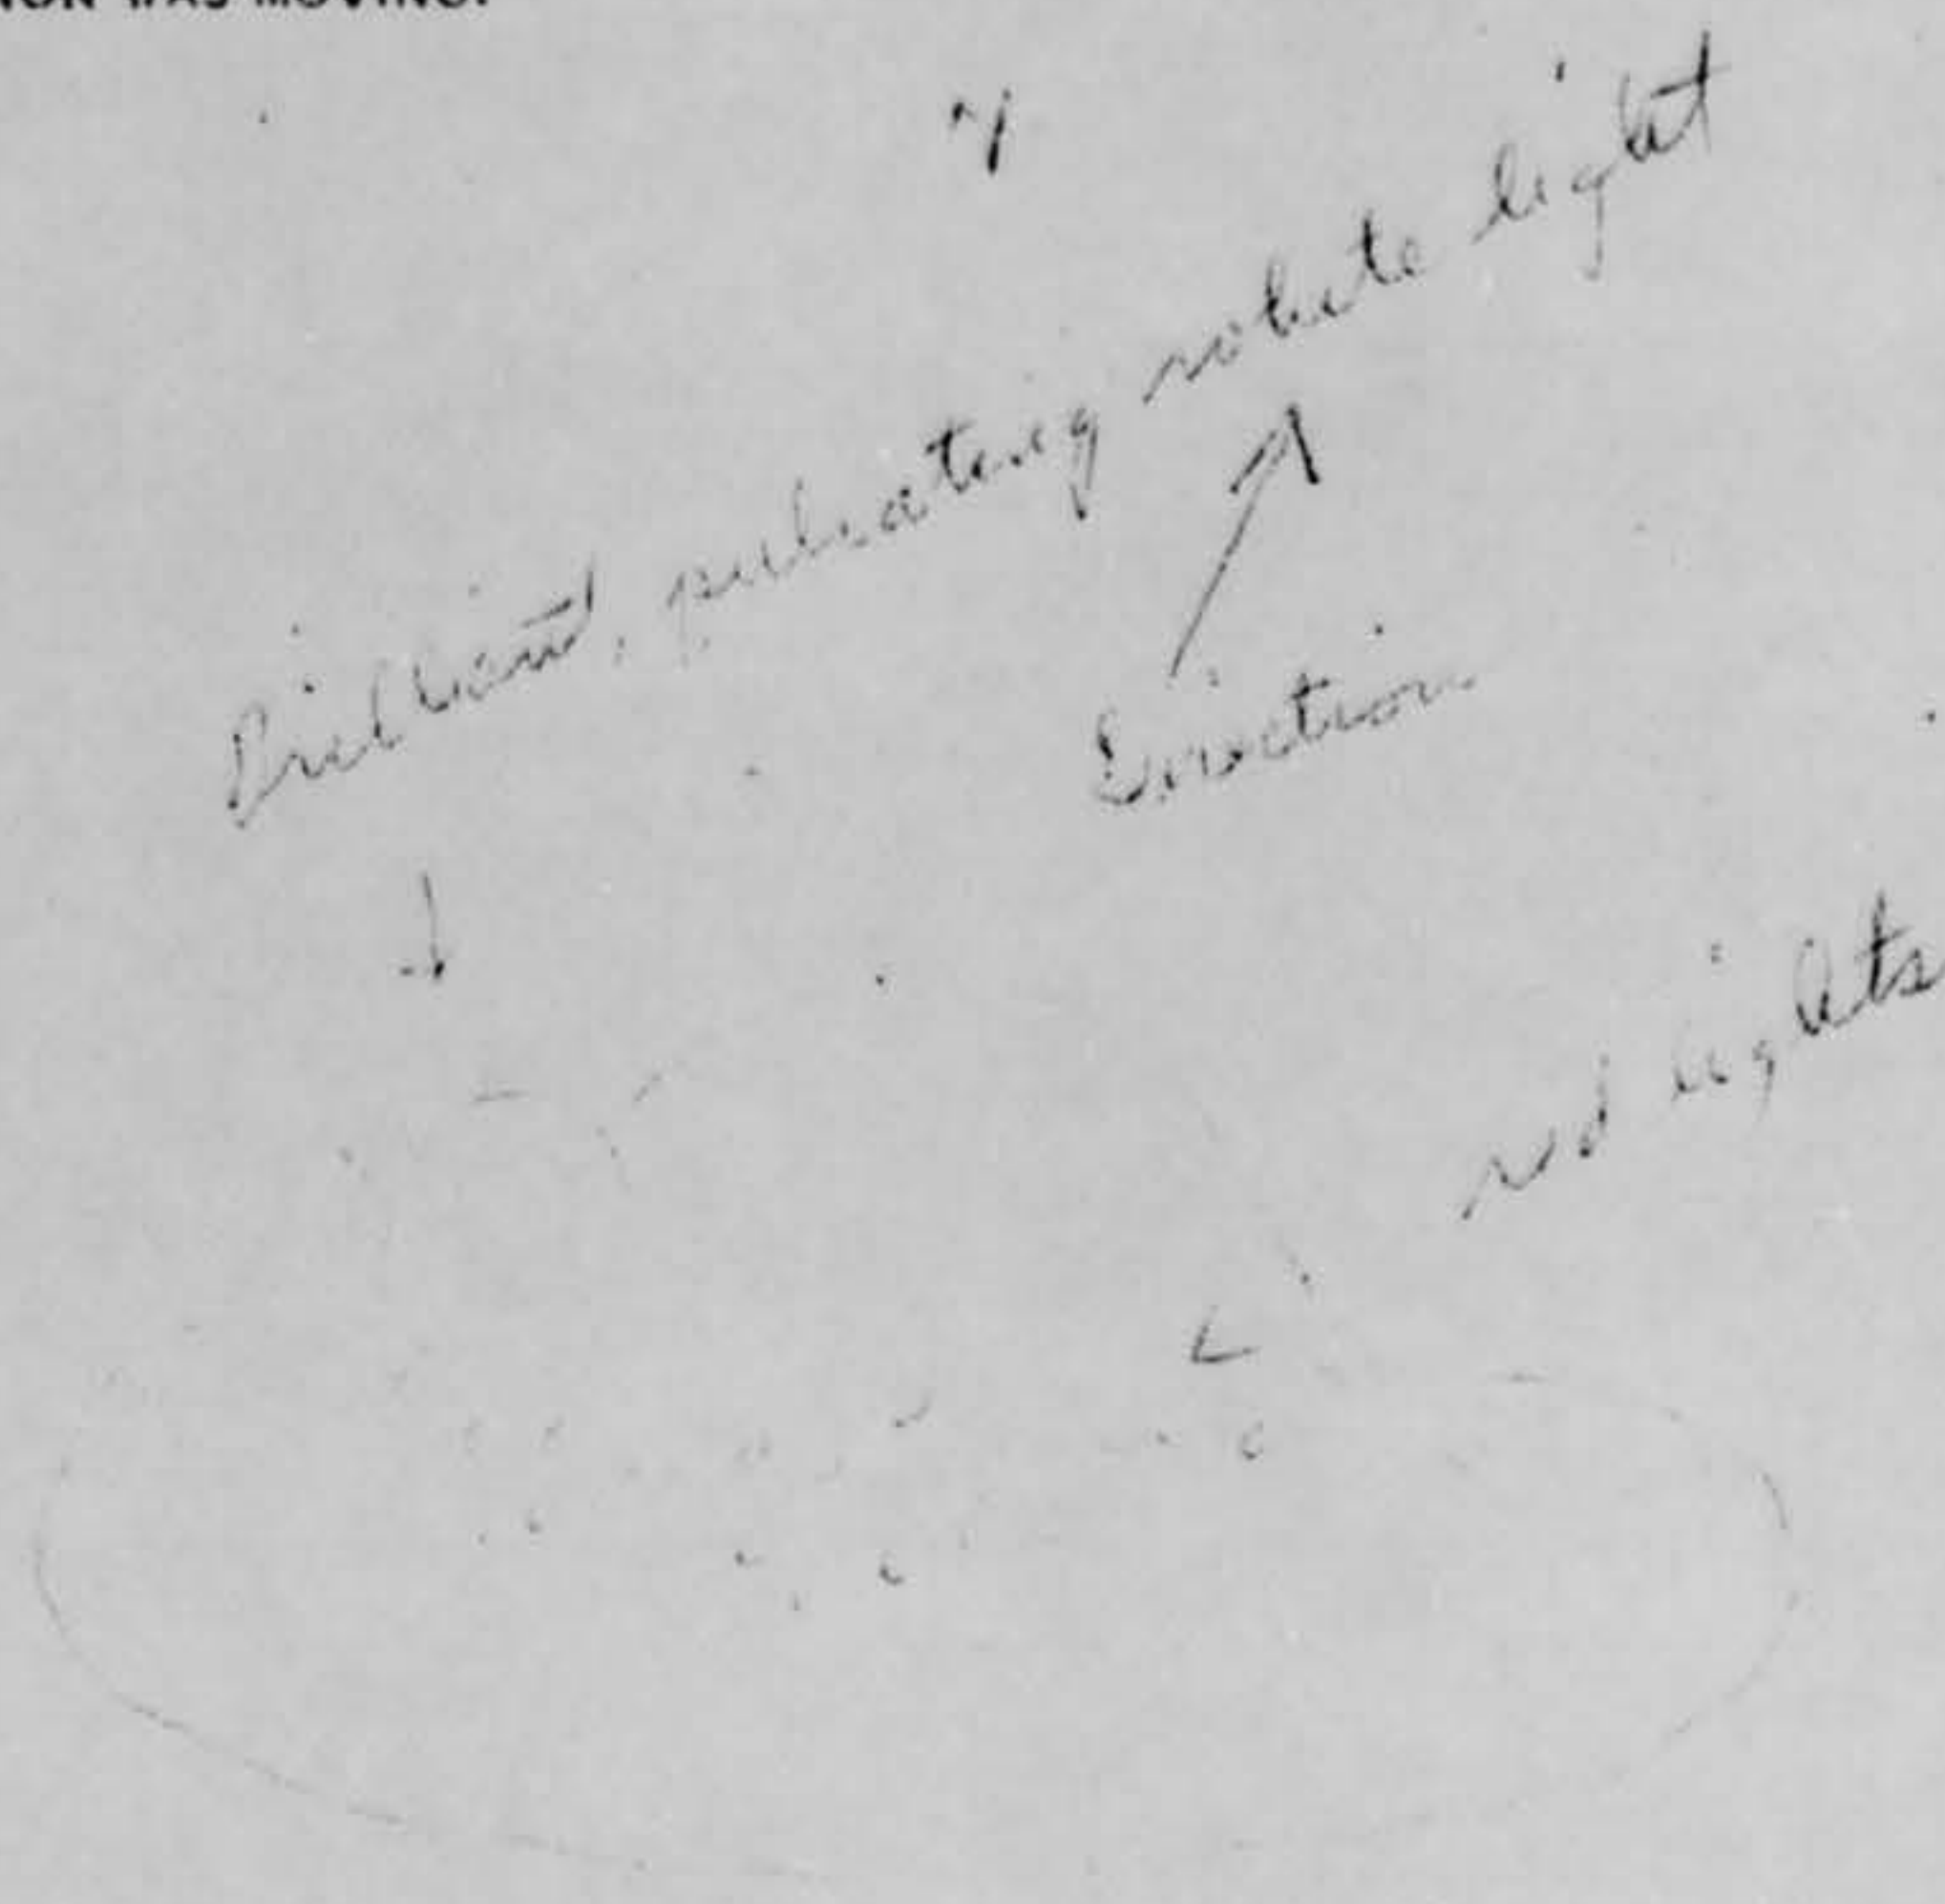 WAS MOVING.
Brilliant, pulsating white light
Direction
red lights